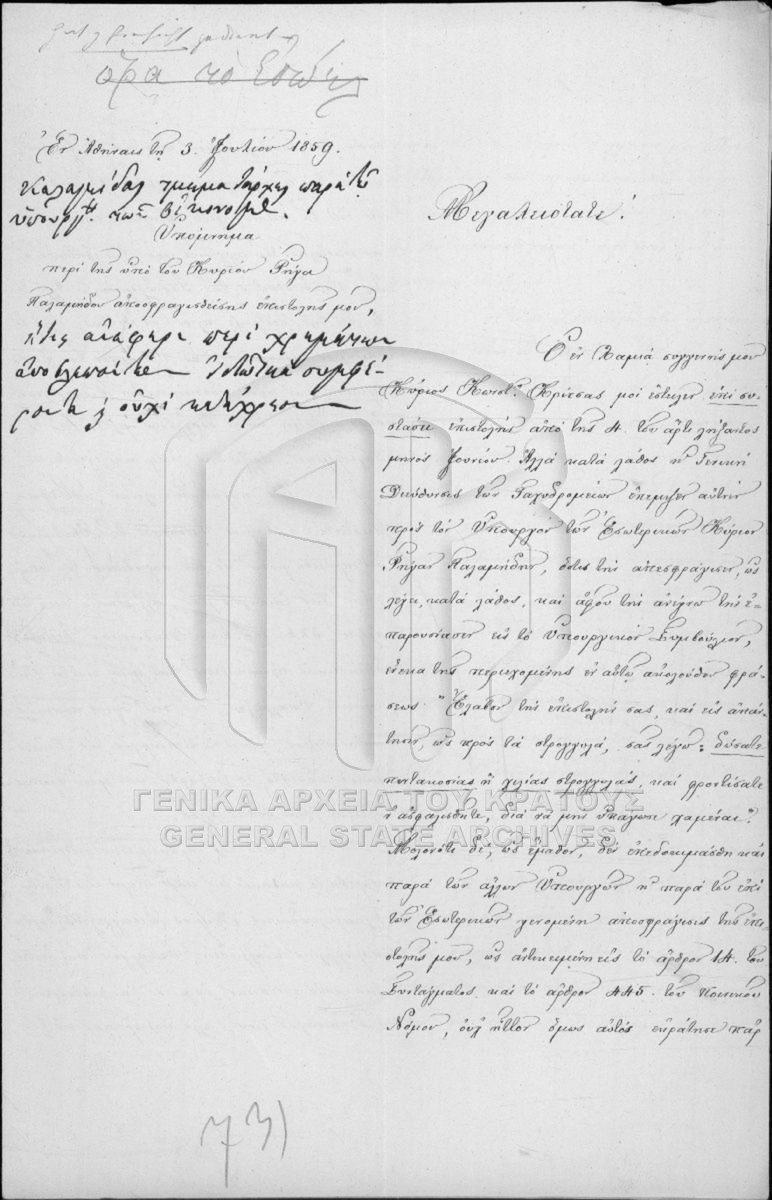 ὅρα τὸ ἔσωθεν
Ἐν Ἀθήναις τῇ 3. Ἰουλίου 1859.
Καλαμίδας τμηματάρχης παρὰ τῷ
ὑπουργ. τῶν Οἰκονομικ.
Ὑπόμνημα
περὶ τῆς ὑπὸ τοῦ Κυρίου Ρήγα
Παλαμήδου ἀποσφραγισθείσης ἐπιστολῆς μου,
ἥτις ἀναφέρει περὶ χρημάτων
ἀποβλεπόντων ἰδιωτικὰ συμφέ-
ροντα κ οὐχὶ κατάχρησιν
Μεγαλειότατε!
Ὁ ἐν Λαμίᾳ συγγενής μου
Κύριος Κωνστ. Κρίτσας μοὶ ἔστειλεν ἐπὶ συ-
στάσει ἐπιστολὴν ἀπὸ τῆς 4. τοῦ ἄρτι λήξαντος
μηνὸς Ἰουνίου. Ἀλλὰ κατὰ λάθος ἡ Γενικὴ
Διεύθυνσις τῶν Ταχυδρομείων ἔπεμψεν αὐτὴν
πρὸς τὸν Ὑπουργὸν τῶν Ἐσωτερικῶν Κύριον
Ρήγαν Παλαμήδην, ὅστις τὴν ἀπεσφράγισεν, ὡς
λέγει, κατὰ λάθος, καὶ ἀφοῦ τὴν ἀνέγνω τὴν ἐ-
παρουσίασεν εἰς τὸ Ὑπουργικὸν Συμβούλιον,
ἕνεκα τῆς περιεχομένης ἐν αὐτῇ ἀκολούθου φρά-
σεως: "Ἔλαβον τὴν ἐπιστολήν σας, καὶ εἰς ἀπάν-
τησιν, ὡς πρὸς τὰ στρογγυλά, σας λέγω: δώσατε
πεντακοσίας ἢ χιλίας στρογγυλάς, καὶ φροντίσατε
ν' ἀσφαλισθῆτε, διὰ νὰ μὴν ὑπάγωσι χαμέναι".
Μολονότι δέ, ὡς ἔμαθον, δὲν ἐπεδοκιμάσθη καὶ
παρὰ τῶν ἄλλων Ὑπουργῶν ἡ παρὰ τοῦ ἐπὶ
τῶν Ἐσωτερικῶν γενομένη ἀποσφράγισις τῆς ἐπι-
στολῆς μου, ὡς ἀντικειμένη εἰς τὸ ἄρθρον 14. τοῦ
Συντάγματος, καὶ τὸ ἄρθρον 445. τοῦ Ποινικοῦ
Νόμου, οὐχ ἧττον ὅμως αὐτὸς ἐκράτησε παρ'
73)
ΓΕΝΙΚΑ ΑΡΧΕΙΑ ΤΟΥ ΚΡΑΤΟΥΣ
GENERAL STATE ARCHIVES